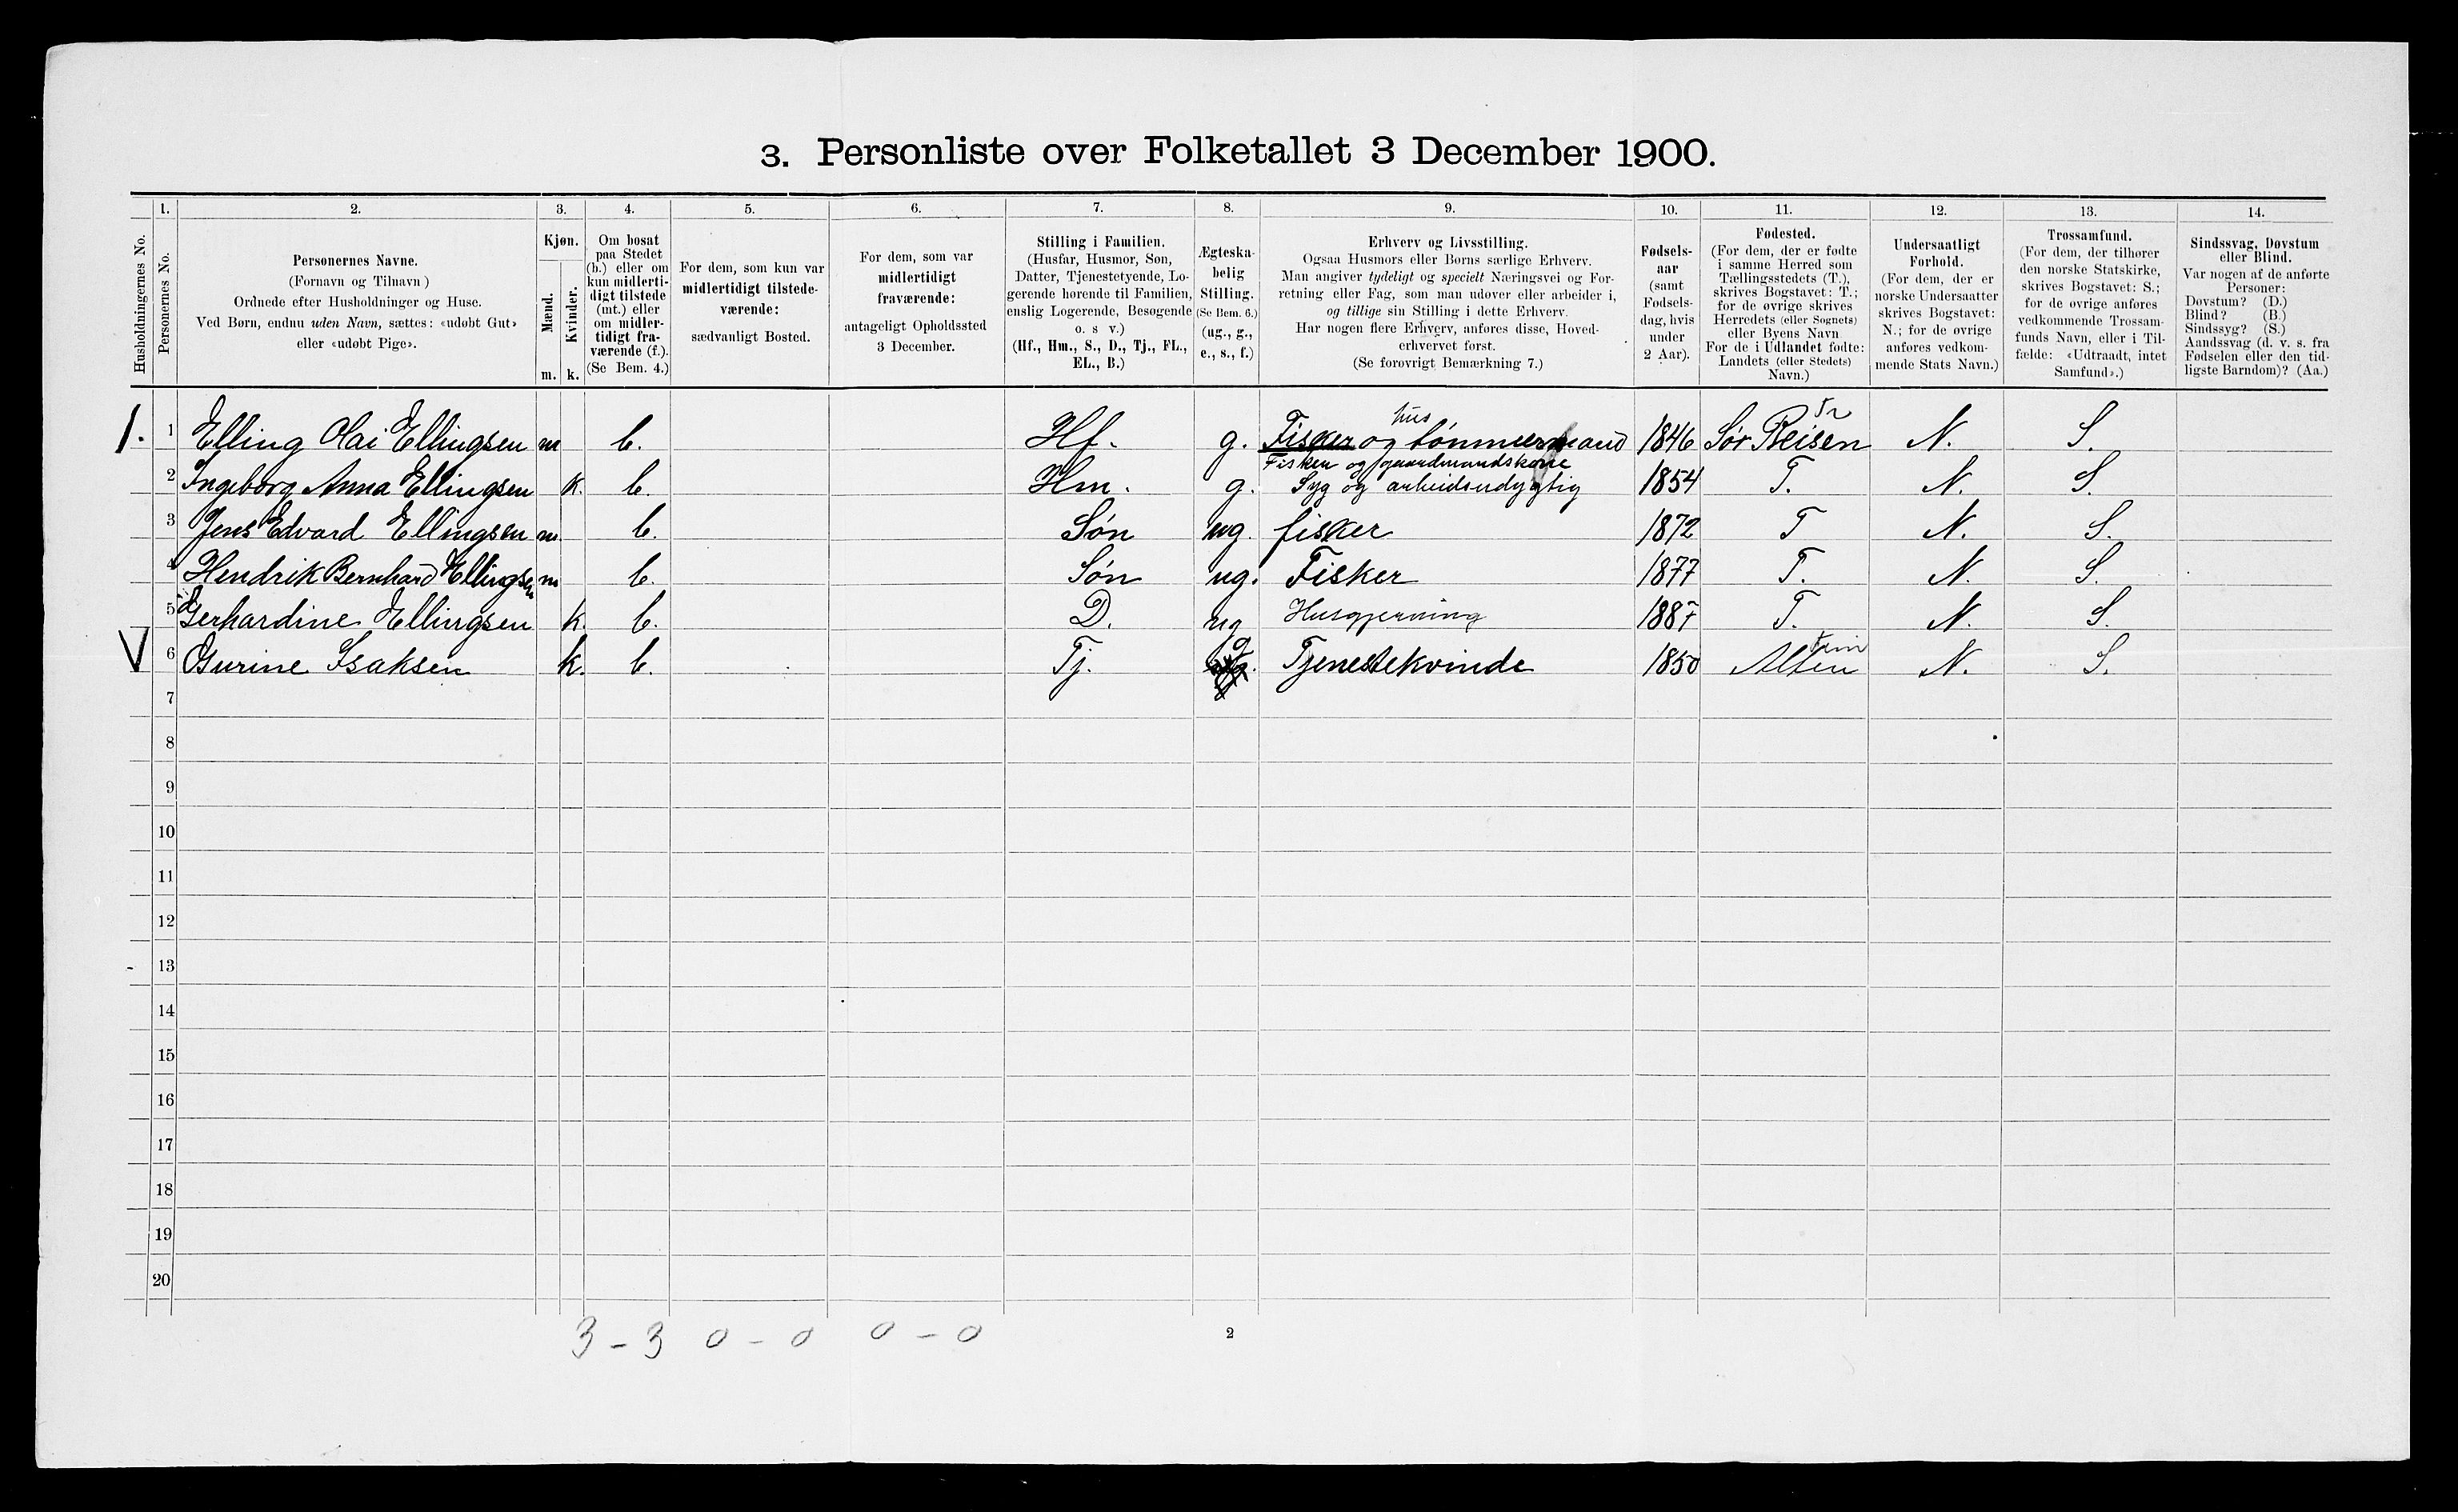 3. Personliste over Folketallet 3 December 1900.
Husholdningernes No.
1.
Personernes No.
2.
Personernes Navne.
(Fornavn og Tilnavn)
Ordnede efter Husholdninger og Huse.
Ved Børn, endnu uden Navn, sættes: «udøbt Gut»
eller «udøbt Pige».
3.
Kjøn.
Mænd.
Kvinder.
m. k.
4.
Om bosat
paa Stedet
(b.) eller om
kun midlerti-
digt tilstede
(mt.) eller
om midler-
tidigt fra-
værende (f.).
(Se Bem. 4.)
5.
For dem, som kun var
midlertidigt tilstede-
værende:
sædvanligt Bosted.
6.
For dem, som var
midlertidigt
fraværende:
antageligt Opholdssted
3 December.
7.
Stilling i Familien.
(Husfar, Husmor, Søn,
Datter, Tjenestetyende, Lo-
gerende hørende til Familien,
enslig Logerende, Besøgende
o. s v.)
(Hf., Hm., S., D., Tj., FL.,
EL., B.)
8.
Ægteska-
belig
Stilling.
(Se Bem. 6.)
(ug., g.,
e., s., f.)
9.
Erhverv og Livsstilling.
Ogsaa Husmors eller Børns særlige Erhverv.
Man angiver tydeligt og specielt Næringsvei og For-
retning eller Fag, som man udøver eller arbeider i,
og tillige sin Stilling i dette Erhverv.
Har nogen flere Erhverv, anføres disse, Hoved-
erhvervet først.
(Se forøvrigt Bemærkning 7.)
10.
Fødsels-
aar
(samt
Fødsels-
dag, hvis
under
2 Aar).
11.
Fødested.
(For dem, der er fødte
i samme Herred som
Tællingsstedets (T.),
skrives Bogstavet: T.;
for de øvrige skrives
Herredets (eller Sognets)
eller Byens Navn
For de i Udlandet fødte:
Landets (eller Stedets)
Navn.)
12.
Undersaatligt
Forhold.
(For dem, der er
norske Undersaatter
skrives Bogstavet:
N.; for de øvrige
anføres vedkom-
mende Stats Navn.)
13.
Trossamfund.
(For dem, der tilhører
den norske Statskirke,
skrives Bogstavet: S.;
for de øvrige anføres
vedkommende Trossam-
funds Navn, eller i Til-
fælde: «Udtraadt, intet
Samfund».)
14.
Sindssvag, Døvstum
eller Blind.
Var nogen af de anførte
Personer:
Døvstum? (D.)
Blind? (B.)
Sindssyg? (S.)
Aandssvag (d. v. s. fra
Fødselen eller den tid-
ligste Barndom)? (Aa.)
hus
1. 1 Elling Olai Ellingsen m b. Hf. g. Fisker og tømmermand 1846 Sør Reisen N. S.
Fisker og gaardmandskone
2 Ingeborg Anna Ellingsen k. b. Hm. g. Syg og arbeidsudygtig 1854 T. N. S.
3 Jens Edvard Ellingsen m. b. Søn ug. fisker 1872 T N. S.
4 Hendrik Bernhard Ellingsen m b. Søn ug. Fisker 1877 T. N. S.
5 Gerhardine Ellingsen k. b. D. ug Husgjerning 1887 T. N. S.
V 6 Gurine Isaksen k. b. Tj. g. Tjenestekvinde 1850 Alten N. S.
7
8
9
10
11
12
13
14
15
16
17
18
19
20
3 - 3 0 - 0 0 - 0
2